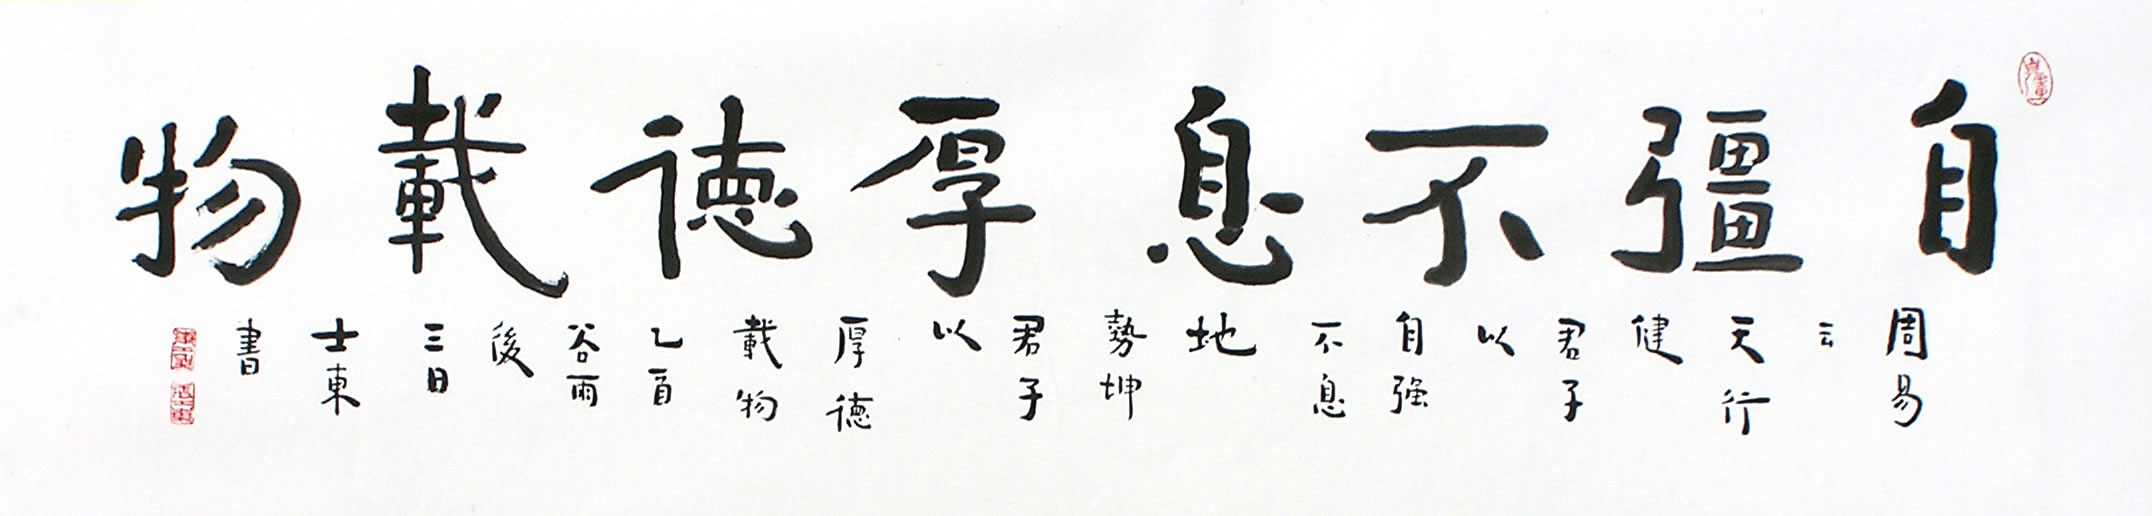 自彊不息厚德載物
周易
云
天行
健
君子
以
自強
不息
地
勢坤
君子
以
厚德
載物
乙酉
谷雨
後
三日
士東
書